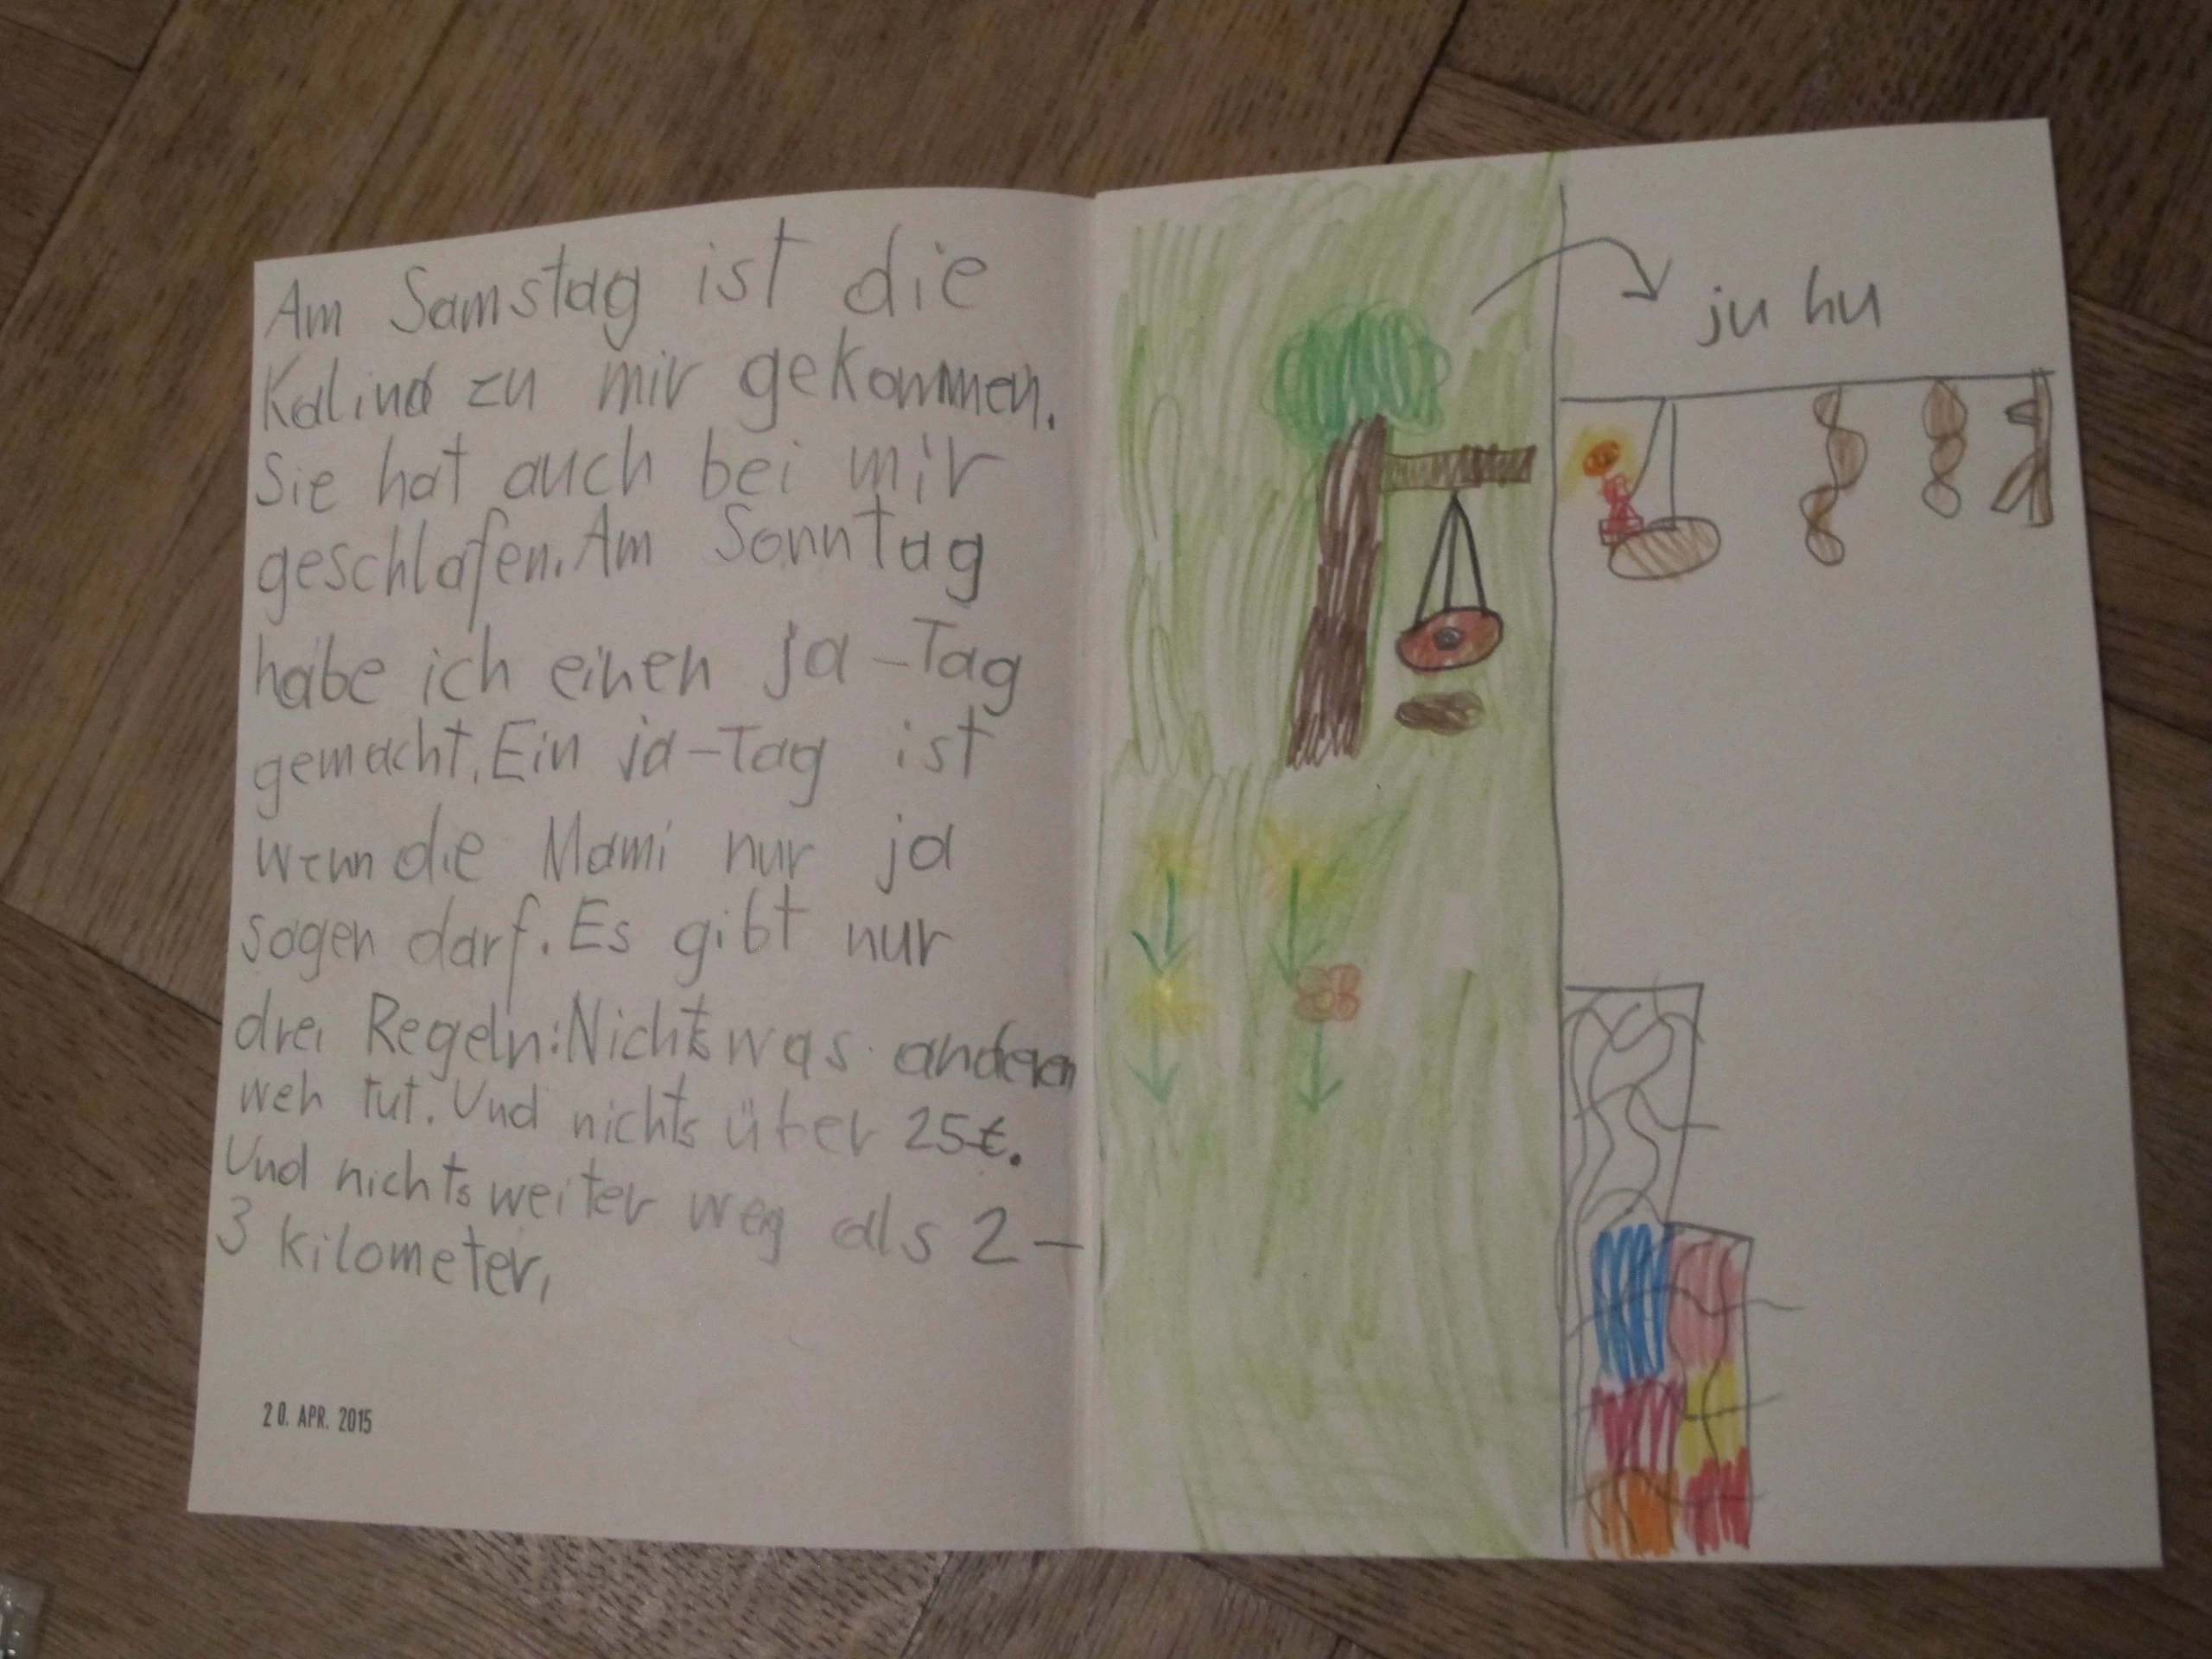 Am Samstag ist die
Kalina zu mir gekommen.
Sie hat auch bei mir
geschlafen. Am Sonntag
habe ich einen ja-Tag
gemacht. Ein ja-Tag ist
wenn die Mami nur ja
sagen darf. Es gibt nur
drei Regeln: Nichts was anderen
weh tut. Und nichts über 25€.
Und nichts weiter weg als 2-
3 kilometer,
20. APR. 2015
ju hu